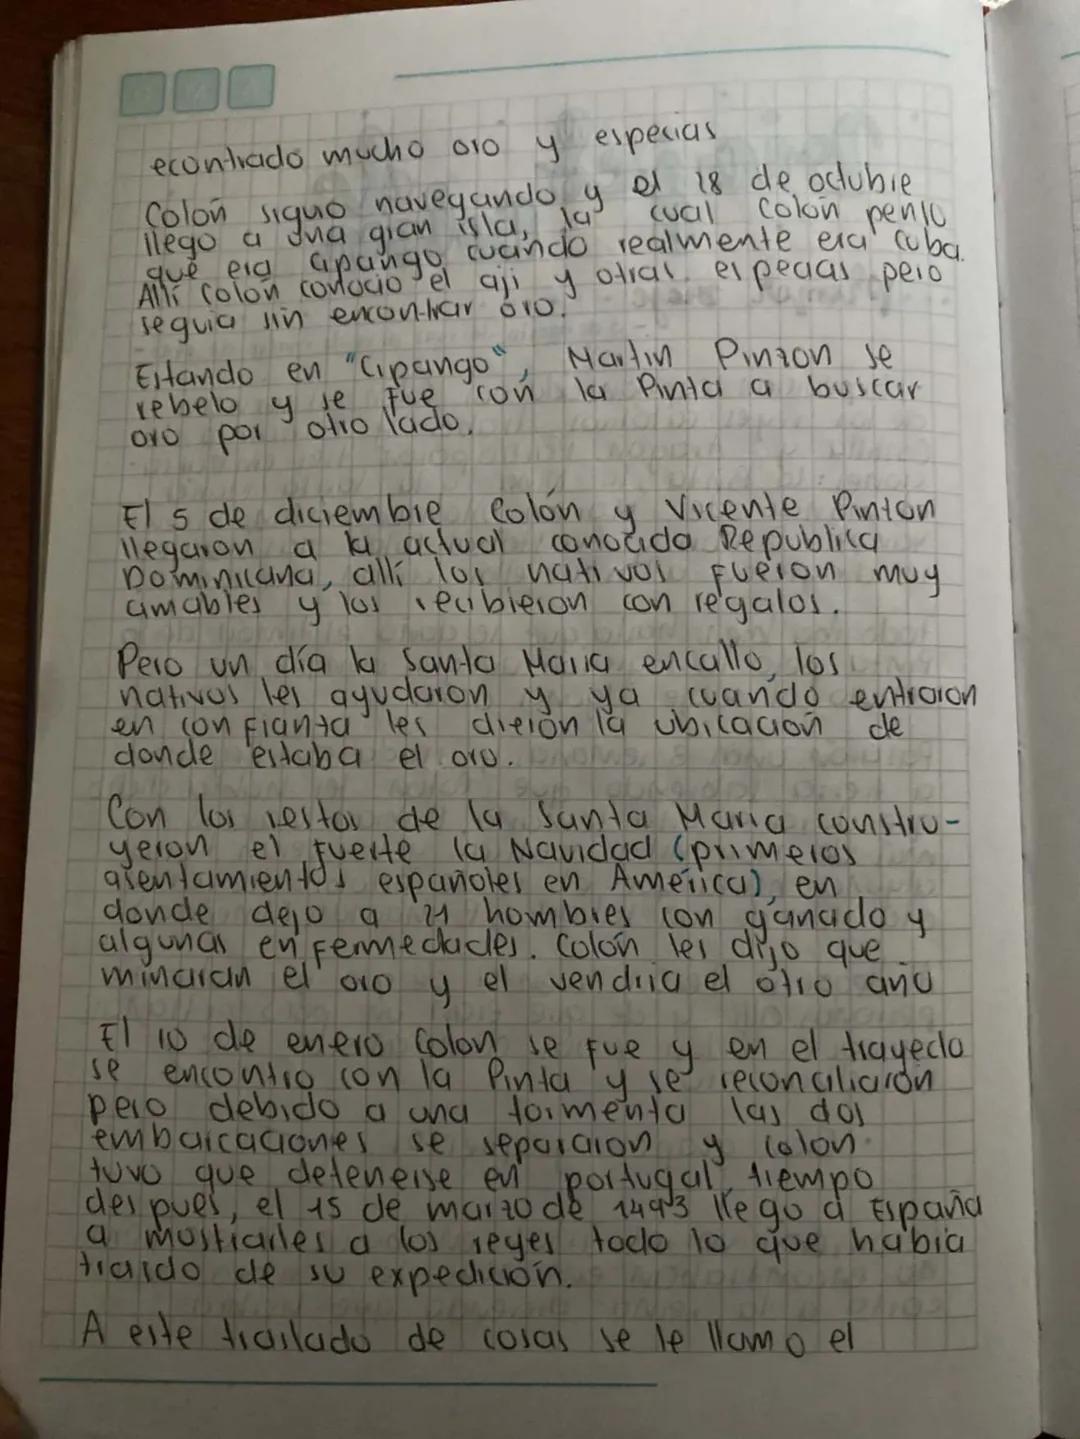 econtrado mucho oro y especias
Colon siguo navegando, y el 18 de octubre
llego a una gran isla, la cual Colon penso
que era cipango cuando realmente era Cuba.
Allí Colon conocio el aji y otras especias pero
seguia sin encontrar oro.
Estando en "Cipango", Martin Pinzon se
rebelo y se fue con la Pinta a buscar
oro por otro lado.
El 5 de diciembre Colón y Vicente Pinzon
llegaron a la actual conocida Republica
Dominicana, allí los nativos fueron muy
amables y los recibieron con regalos.
Pero un día la Santa Maria encallo, los
nativos les ayudaron y ya cuando entraron
en confianza les dieron la ubicacion de
donde estaba el oro.
Con los restos de la Santa Maria constru-
yeron el fuerte la Navidad (primeros
asentamientos españoles en América), en
donde dejo a hombres con ganado y
algunas enfermedades. Colón les dijo que
minaran el oro y el vendria el otro año
El 10 de enero Colon se fue y en el trayecto
se encontro con la Pinta y se reconciliaron
pero debido a una tormenta las dos
embarcaciones se separaron y Colon
tuvo que detenerse en portugal, tiempo
despues, el 15 de marzo de 1493 llego a España
a mostrarles a los reyes todo lo que habia
traido de su expedición.
A este traslado de cosas se le llamo el